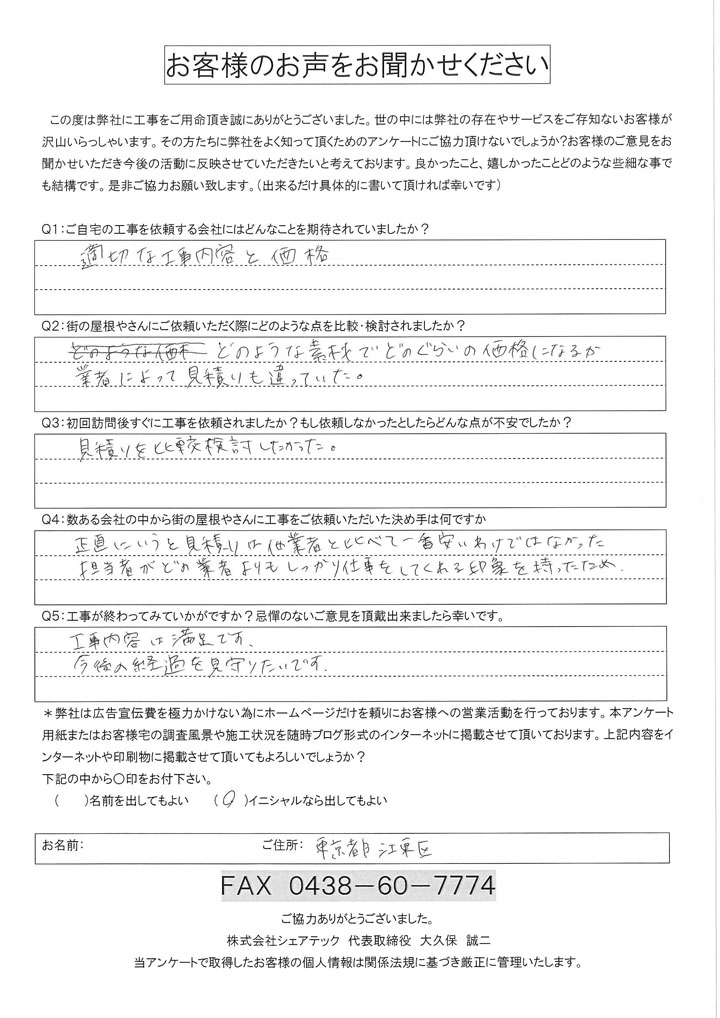 お客様のお声をお聞かせください
この度は弊社に工事をご用命頂き誠にありがとうございました。世の中には弊社の存在やサービスをご存知ないお客様が
沢山いらっしゃいます。その方たちに弊社をよく知って頂くためのアンケートにご協力頂けないでしょうか?お客様のご意見をお
聞かせいただき今後の活動に反映させていただきたいと考えております。良かったこと、嬉しかったことどのような些細な事で
も結構です。是非ご協力お願い致します。(出来るだけ具体的に書いて頂ければ幸いです)
Q1:ご自宅の工事を依頼する会社にはどんなことを期待されていましたか?
適切な工事内容と価格
Q2:街の屋根やさんにご依頼いただく際にどのような点を比較・検討されましたか?
どのような価格 どのような素材でどのぐらいの価格になるか
業者によって見積りも違っていた。
Q3:初回訪問後すぐに工事を依頼されましたか?もし依頼しなかったとしたらどんな点が不安でしたか?
見積りを比較検討したかった。
Q4:数ある会社の中から街の屋根やさんに工事をご依頼いただいた決め手は何ですか
正直にいうと見積りは他業者と比べて一番安いわけではなかった
担当者がどの業者よりもしっかり仕事をしてくれる印象を持ったため.
Q5:工事が終わってみていかがですか?忌憚のないご意見を頂戴出来ましたら幸いです。
工事内容は満足です.
今後の経過を見守りたいです.
*弊社は広告宣伝費を極力かけない為にホームページだけを頼りにお客様への営業活動を行っております。本アンケート
用紙またはお客様宅の調査風景や施工状況を随時ブログ形式のインターネットに掲載させて頂いております。上記内容をイ
ンターネットや印刷物に掲載させて頂いてもよろしいでしょうか?
下記の中から○印をお付下さい。
( )名前を出してもよい (○)イニシャルなら出してもよい
お名前: ご住所: 東京都江東区
FAX 0438-60-7774
ご協力ありがとうございました。
株式会社シェアテック 代表取締役 大久保 誠二
当アンケートで取得したお客様の個人情報は関係法規に基づき厳正に管理いたします。